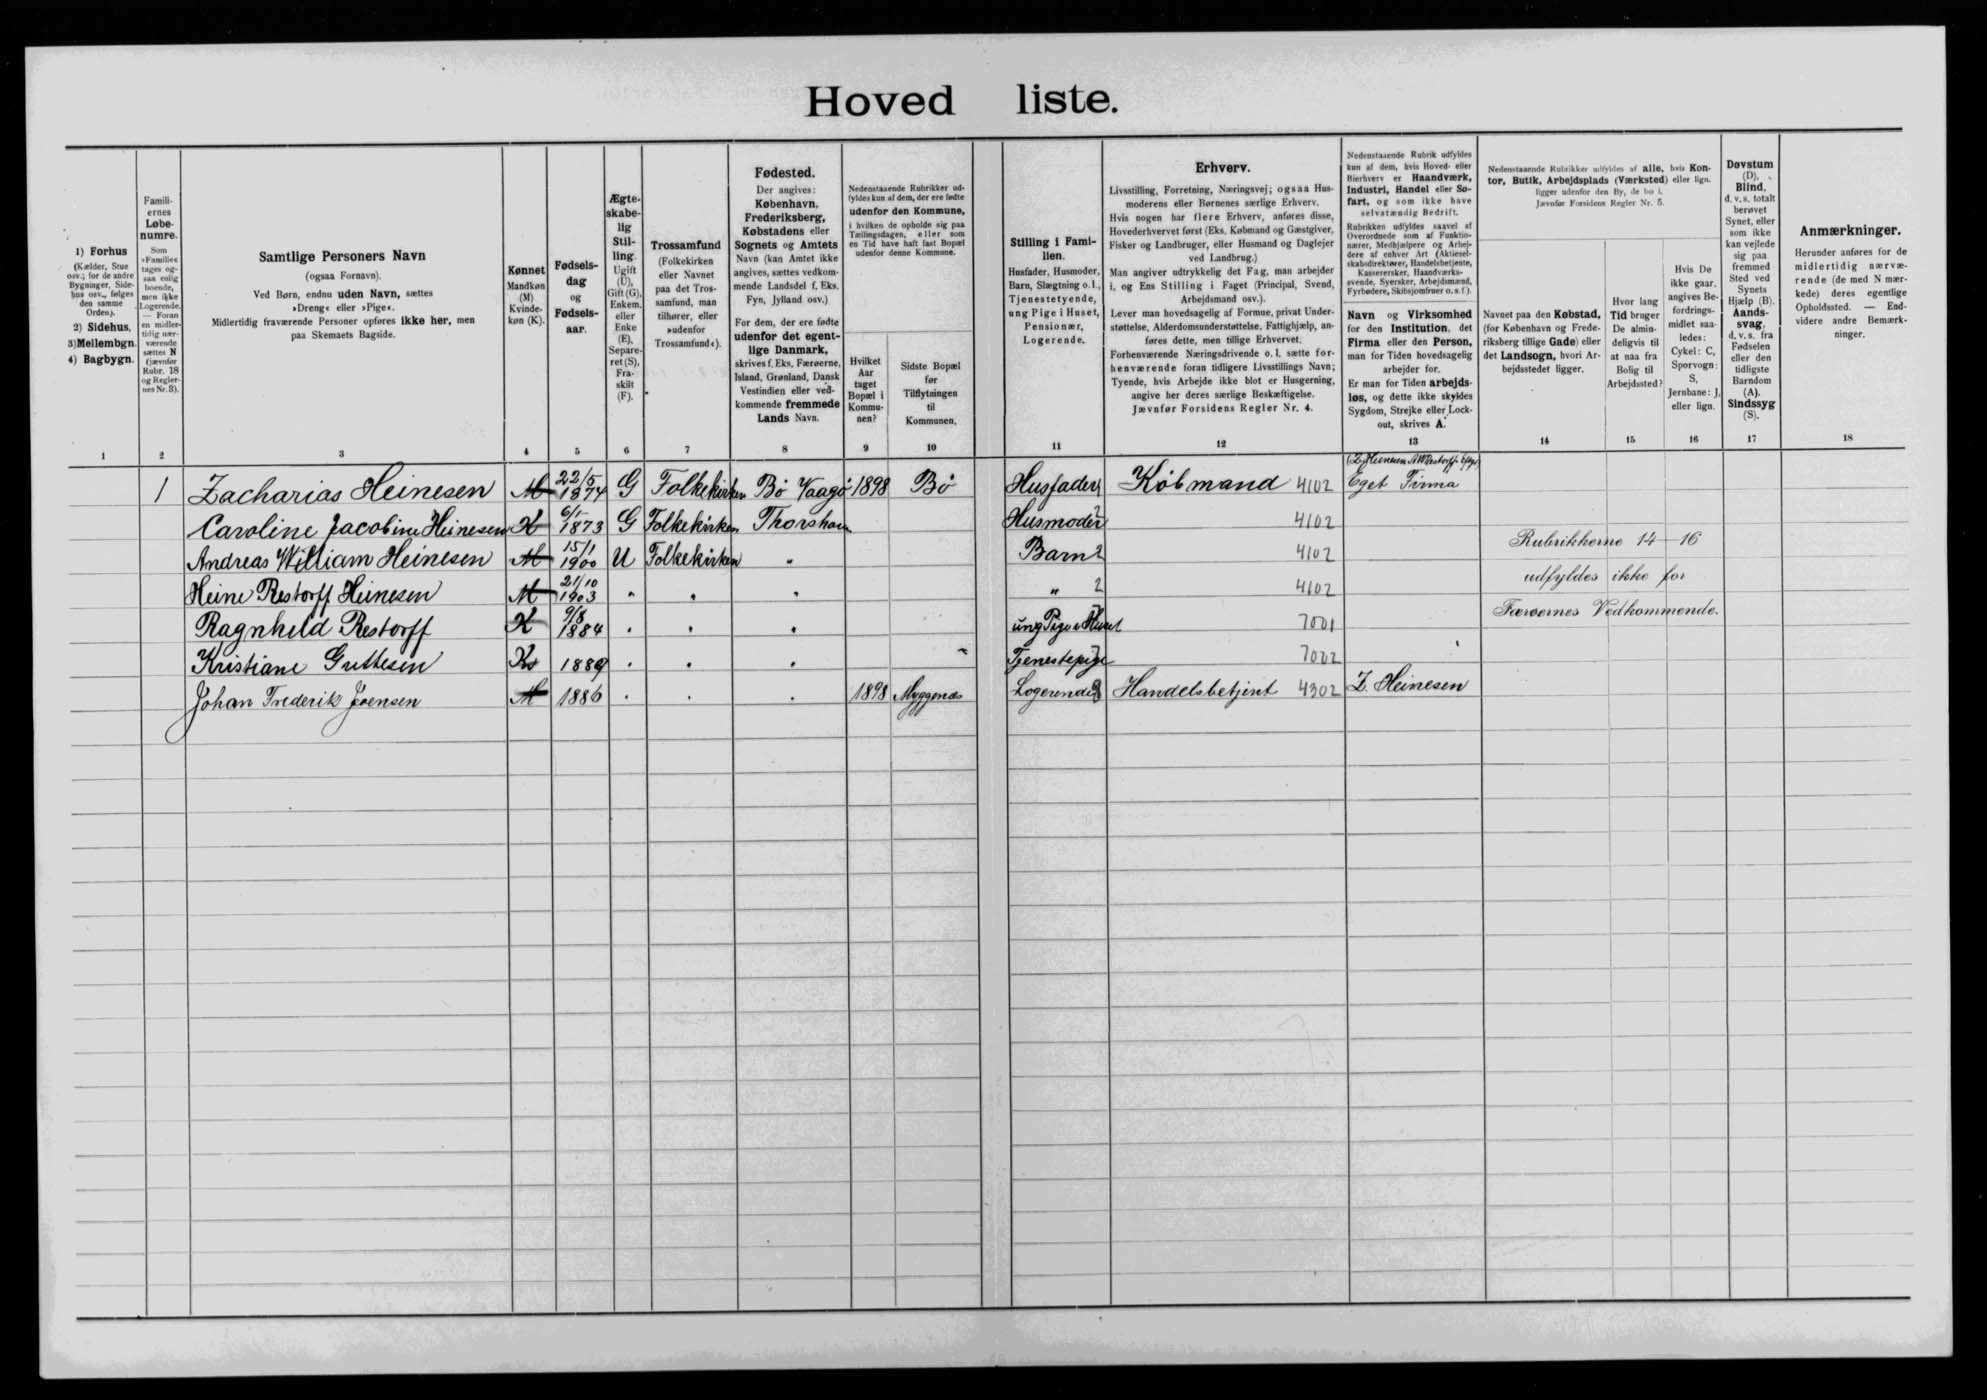 Hoved liste.
1) Forhus
(Kælder, Stue
osv.; for de andre
Bygninger, Side-
hus osv., følges
den samme
Orden).
2) Sidehus,
3) Mellembgn.
4) Bagbygn.
1
Famili-
ernes
Løbe-
numre.
Som
»Familie«
tages og-
saa enlig
boende,
men ikke
Logerende.
— Foran
en midler-
tidig nær-
værende
sættes N
(jævnfør
Rubr. 18
og Regler-
nes Nr. 3).
2
Samtlige Personers Navn
(ogsaa Fornavn).
Ved Børn, endnu uden Navn, sættes
»Dreng« eller »Pige«.
Midlertidig fraværende Personer opføres ikke her, men
paa Skemaets Bagside.
3
Kønnet
Mandkøn
(M)
Kvinde-
køn (K).
4
Fødsels-
dag
og
Fødsels-
aar.
5
Ægte-
skabe-
lig
Stil-
ling.
Ugift
(U),
Gift (G),
Enkem.
eller
Enke
(E),
Separe-
ret (S),
Fra-
skilt
(F).
6
Trossamfund
(Folkekirken
eller Navnet
paa det Tros-
samfund, man
tilhører, eller
»udenfor
Trossamfund«).
7
Fødested.
Der angives:
København,
Frederiksberg,
Købstadens eller
Sognets og Amtets
Navn (kan Amtet ikke
angives, sættes vedkom-
mende Landsdel f. Eks.
Fyn, Jylland osv.)
For dem, der ere fødte
udenfor det egent-
lige Danmark,
skrives f. Eks. Færøerne,
Island, Grønland, Dansk
Vestindien eller ved-
kommende fremmede
Lands Navn.
8
Nedenstaaende Rubrikker ud-
fyldes kun af dem, der ere fødte
udenfor den Kommune,
i hvilken de opholde sig paa
Tællingsdagen, eller som
en Tid have haft fast Bopæl
udenfor denne Kommune.
Hvilket
Aar
taget
Bopæl i
Kommu-
nen?
9
Sidste Bopæl
før
Tilflytningen
til
Kommunen.
10
Stilling i Fami-
lien.
Husfader, Husmoder,
Barn, Slægtning o. l.,
Tjenestetyende,
ung Pige i Huset,
Pensionær,
Logerende.
11
Erhverv.
Livsstilling, Forretning, Næringsvej; ogsaa Hus-
moderens eller Børnenes særlige Erhverv.
Hvis nogen har flere Erhverv, anføres disse,
Hovederhvervet først (Eks. Købmand og Gæstgiver,
Fisker og Landbruger, eller Husmand og Daglejer
ved Landbrug.)
Man angiver udtrykkelig det Fag, man arbejder
i, og Ens Stilling i Faget (Principal, Svend,
Arbejdsmand osv.).
Lever man hovedsagelig af Formue, privat Under-
støttelse, Alderdomsunderstøttelse, Fattighjælp, an-
føres dette, men tillige Erhvervet.
Forhenværende Næringsdrivende o. l. sætte for-
henværende foran tidligere Livsstillings Navn;
Tyende, hvis Arbejde ikke blot er Husgerning,
angive her deres særlige Beskæftigelse.
Jævnfør Forsidens Regler Nr. 4.
12
Nedenstaaende Rubrik udfyldes
kun af dem, hvis Hoved- eller
Bierhverv er Haandværk,
Industri, Handel eller Sø-
fart, og som ikke have
selvstændig Bedrift.
Rubrikken udfyldes saavel af
Overordnede som af Funktio-
nærer, Medhjælpere og Arbej-
dere af enhver Art (Aktiesel-
skabsdirektører, Handelsbetjente,
Kasserersker, Haandværks-
svende, Syersker, Arbejdsmænd,
Fyrbødere, Skibsjomfruer o. s. f.).
Navn og Virksomhed
for den Institution, det
Firma eller den Person,
man for Tiden hovedsagelig
arbejder for.
Er man for Tiden arbejds-
løs, og dette ikke skyldes
Sygdom, Strejke eller Lock-
out, skrives A.
13
Nedenstaaende Rubrikker udfyldes af alle, hvis Kon-
tor, Butik, Arbejdsplads (Værksted) eller lign.
ligger udenfor den By, de bo i.
Jævnfør Forsidens Regler Nr. 5.
Navnet paa den Købstad,
(for København og Frede-
riksberg tillige Gade) eller
det Landsogn, hvori Ar-
bejdsstedet ligger.
14
Hvor lang
Tid bruger
De almin-
deligvis til
at naa fra
Bolig til
Arbejdssted?
15
Hvis De
ikke gaar,
angives Be-
fordrings-
midlet saa-
ledes:
Cykel: C,
Sporvogn:
S,
Jernbane: J,
eller lign.
16
Døvstum
(D).
Blind,
d. v. s. totalt
berøvet
Synet, eller
som ikke
kan vejlede
sig paa
fremmed
Sted ved
Synets
Hjælp (B).
Aands-
svag,
d. v. s. fra
Fødselen
eller den
tidligste
Barndom
(A).
Sindssyg
(S).
17
Anmærkninger.
Herunder anføres for de
midlertidig nærvæ-
rende (de med N mær-
kede) deres egentlige
Opholdssted. — End-
videre andre Bemærk-
ninger.
18
1 Zacharias Heinesen M 22/5 1874 G Folkekirken Bø Vaagø 1898 Bø Husfader Købmand 4102 Eget Firma
Caroline Jacobine Heinesen K 6/1 1873 G Folkekirken Thorshavn Husmoder 2 4102
Andreas William Heinesen M 15/1 1900 U Folkekirken " Barn 2 4102
Heine Restorff Heinesen M 21/10 1903 " " " " 2 4102
Ragnhild Restorff K 9/8 1884 " " " ung Pige i Huset 7001
Kristiane Guttesen K 1889 " " " Tjenestepige 7002
Johan Frederik Joensen M 1886 " " " 1898 Myggenæs Logerende Handelsbetjent 4302 Z. Heinesen
Rubrikkerne 14-16
udfyldes ikke for
Færøernes Vedkommende.